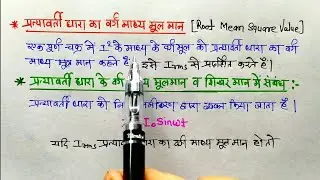 * प्रत्यावर्ती धारा का वर्ग माध्य मूल मान [Root Mean Square Value]
एक पूर्ण चक्र में I² के माध्य के वर्गमूल को प्रत्यावर्ती धारा का वर्ग
माध्य मूल मान कहते हैं। इसे Irms से प्रदर्शित करते हैं।
* प्रत्यावर्ती धारा के वर्ग मूलमान व शिखर मान में संबंध:-
प्रत्यावर्ती धारा को द्वारा व्यक्त किया जाता है।
I₀ Sinωt
यदि Irms प्रत्यावर्ती धारा का वर्ग माध्य मूल मान हो तो